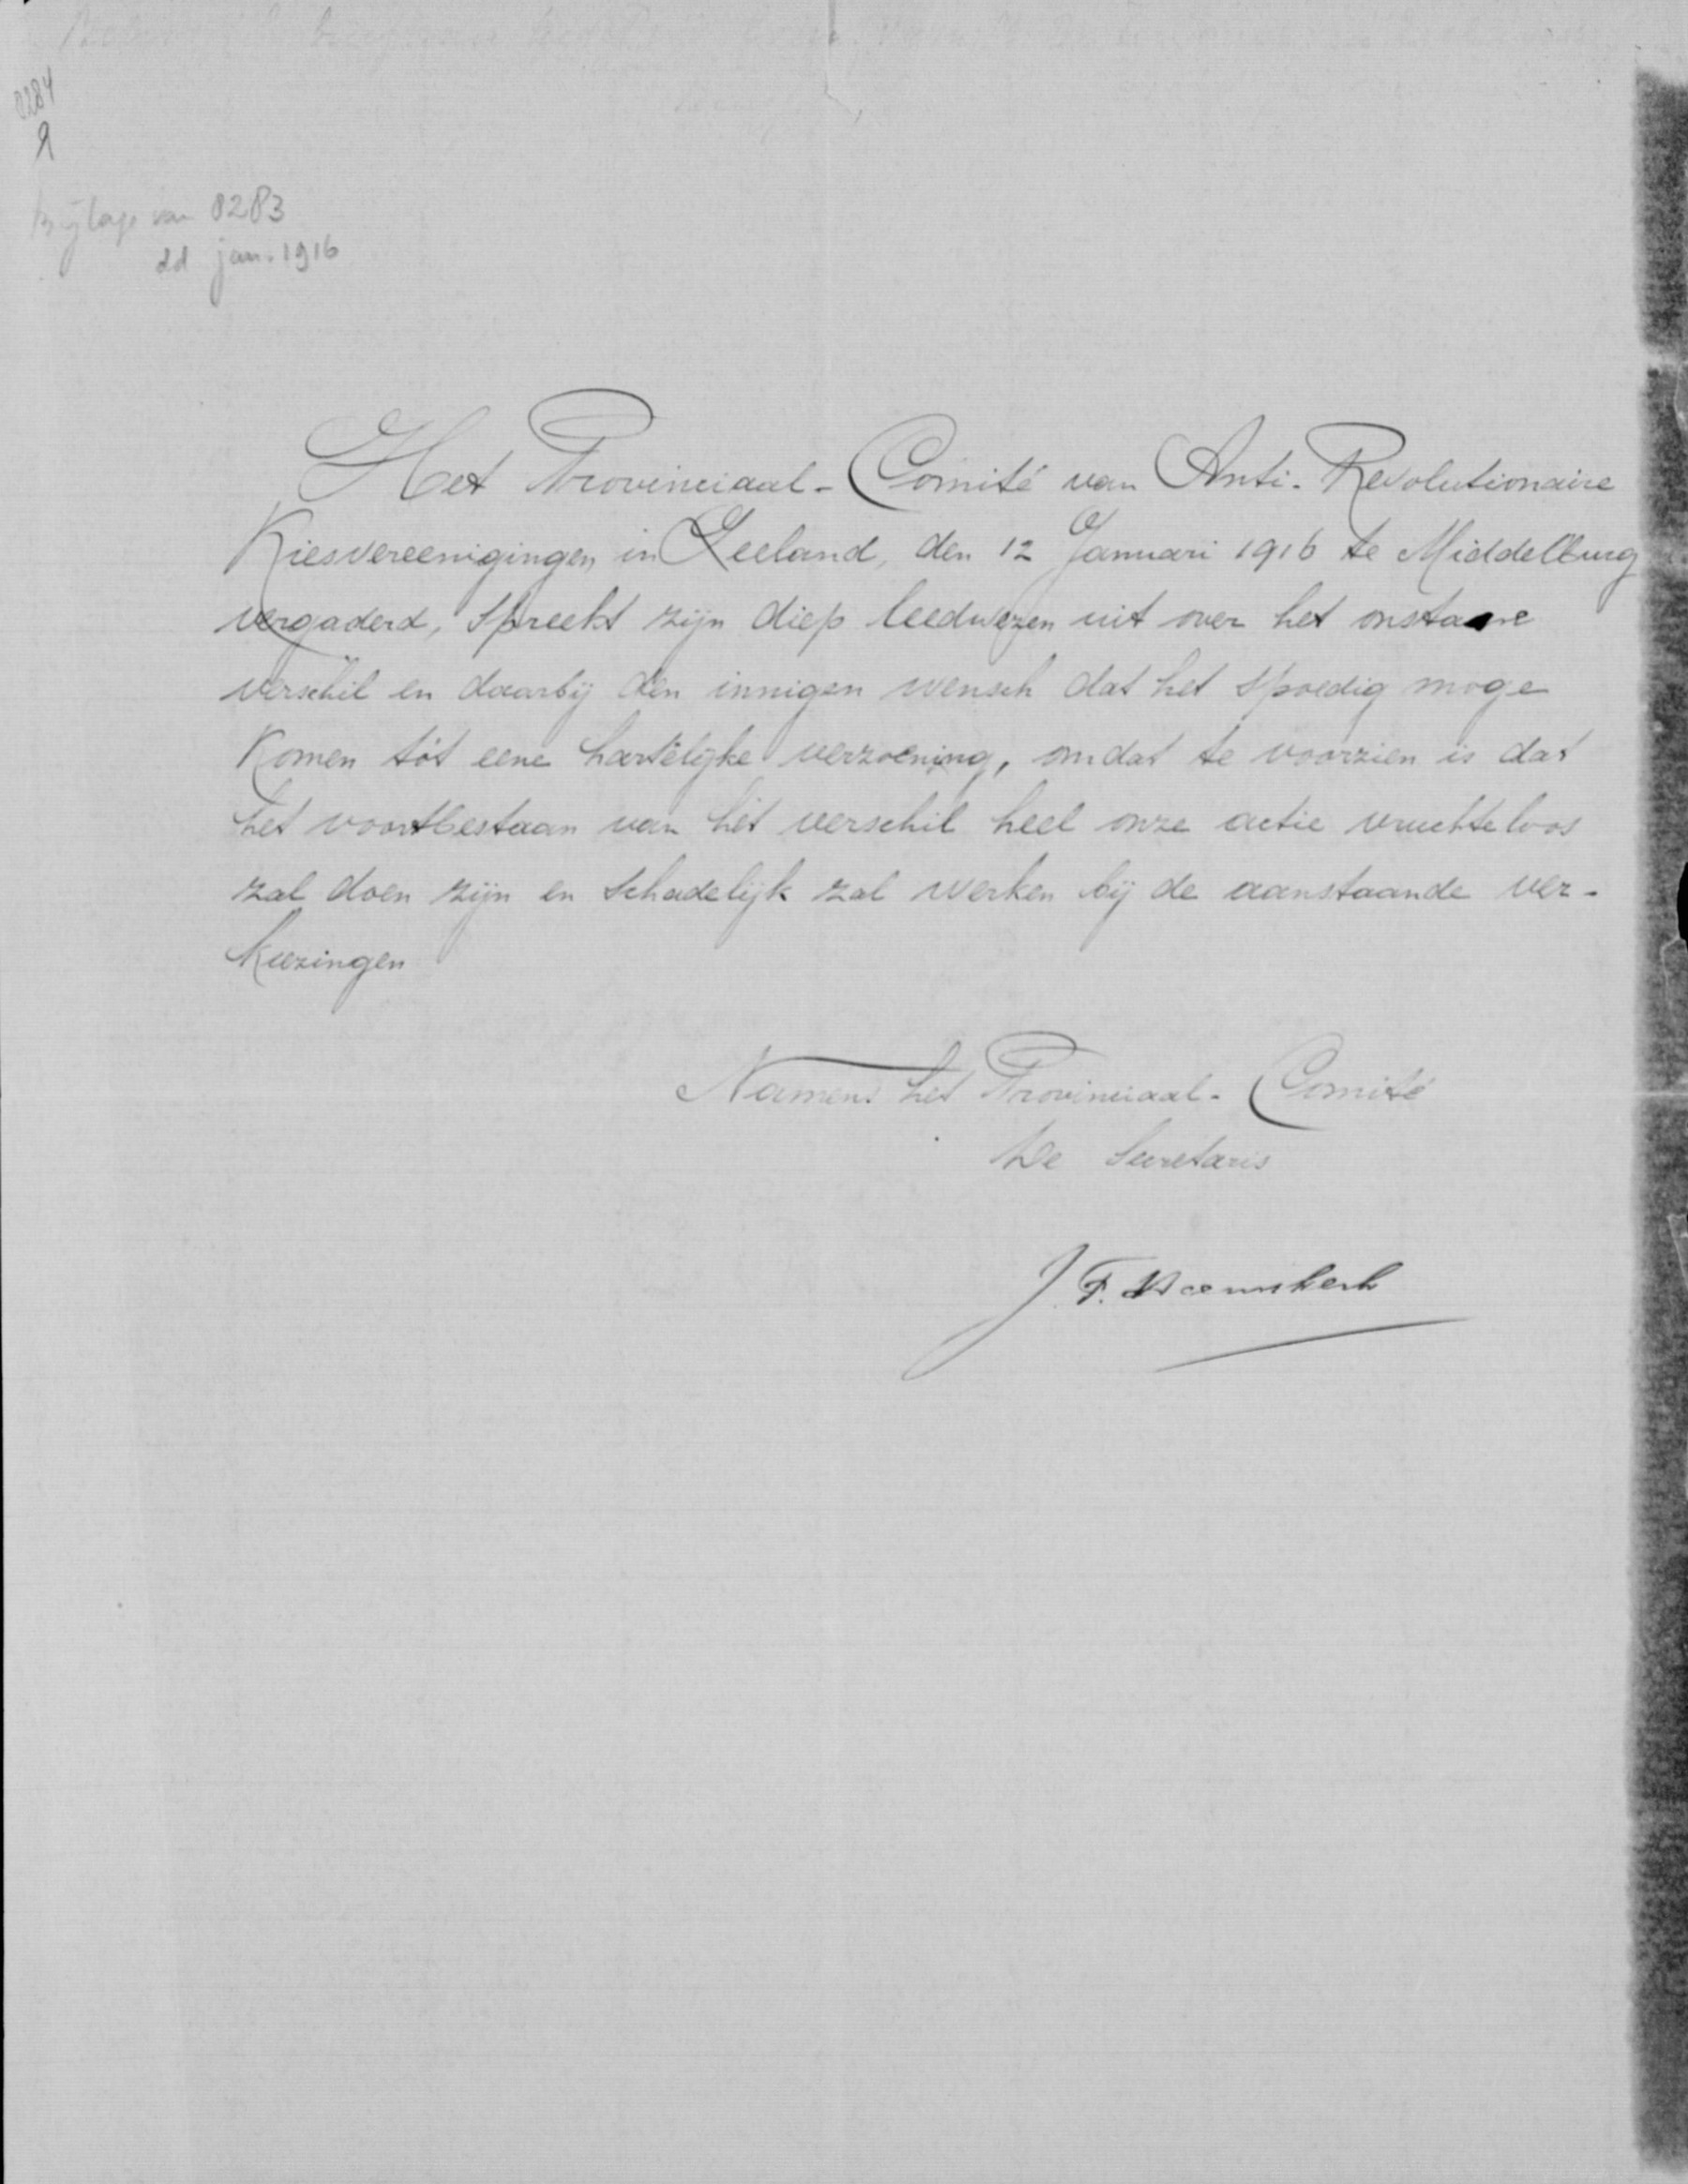 0284
Bijlage van 0283
dd jan. 1916
Het Provinciaal-Comité van Anti-Revolutionaire
Kiesvereenigingen in Zeeland, den 12 Januari 1916 te Middelburg
vergaderd, spreekt zijn diep leedwezen uit over het onstane
verschil en daarbij den innigen wensch dat het spoedig moge
komen tot eene hartelijke verzoening, omdat te voorzien is dat
het voortbestaan van het verschil heel onze actie vruchteloos
zal doen zijn en schadelijk zal werken bij de aanstaande ver-
kiezingen
Namens het Provinciaal-Comité
De Secretaris
J. F. Heemskerk